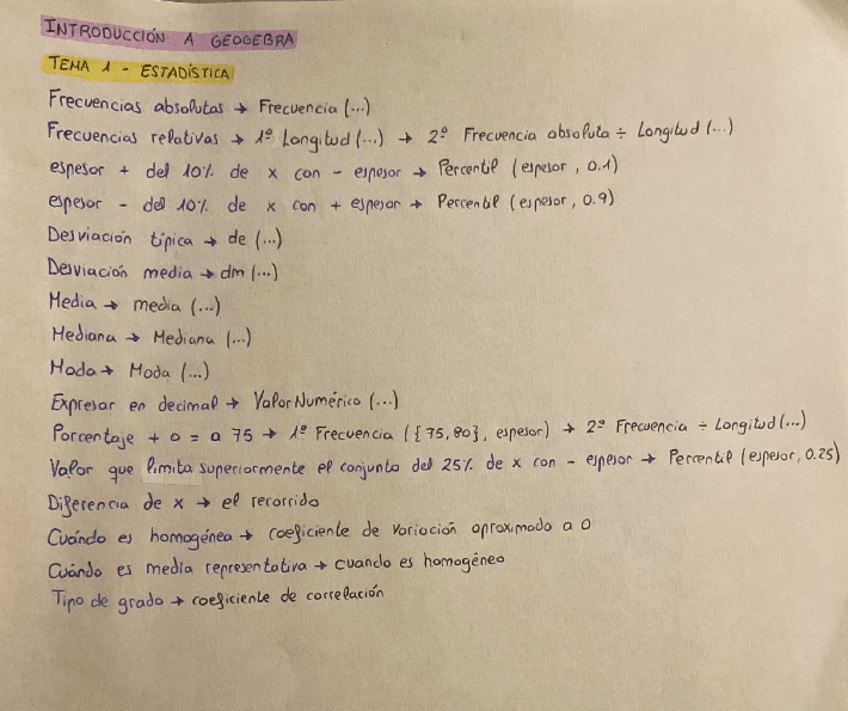 INTRODUCCIÓN A GEOGEBRA
TEMA 1 - ESTADÍSTICA
Frecuencias absolutas → Frecuencia (...)
Frecuencias relativas → 1º Longitud (...) → 2º Frecuencia absoluta ÷ Longitud (...)
espesor + del 10% de x con - espesor → Percentil (espesor, 0.1)
espesor - del 10% de x con + espesor → Percentil (espesor, 0.9)
Desviación típica → de (...)
Desviación media → dm (...)
Media → media (...)
Mediana → Mediana (...)
Moda → Moda (...)
Expresar en decimal → ValorNumérico (...)
Porcentaje + o = a 75 → 1º Frecuencia ({75,80}, espesor) → 2º Frecuencia ÷ Longitud (...)
Valor que limita superiormente el conjunto del 25% de x con - espesor → Percentil (espesor, 0.25)
Diferencia de x → el recorrido
Cuándo es homogénea → coeficiente de variación aproximado a 0
Cuándo es media representativa → cuando es homogéneo
Tipo de grado → coeficiente de correlación